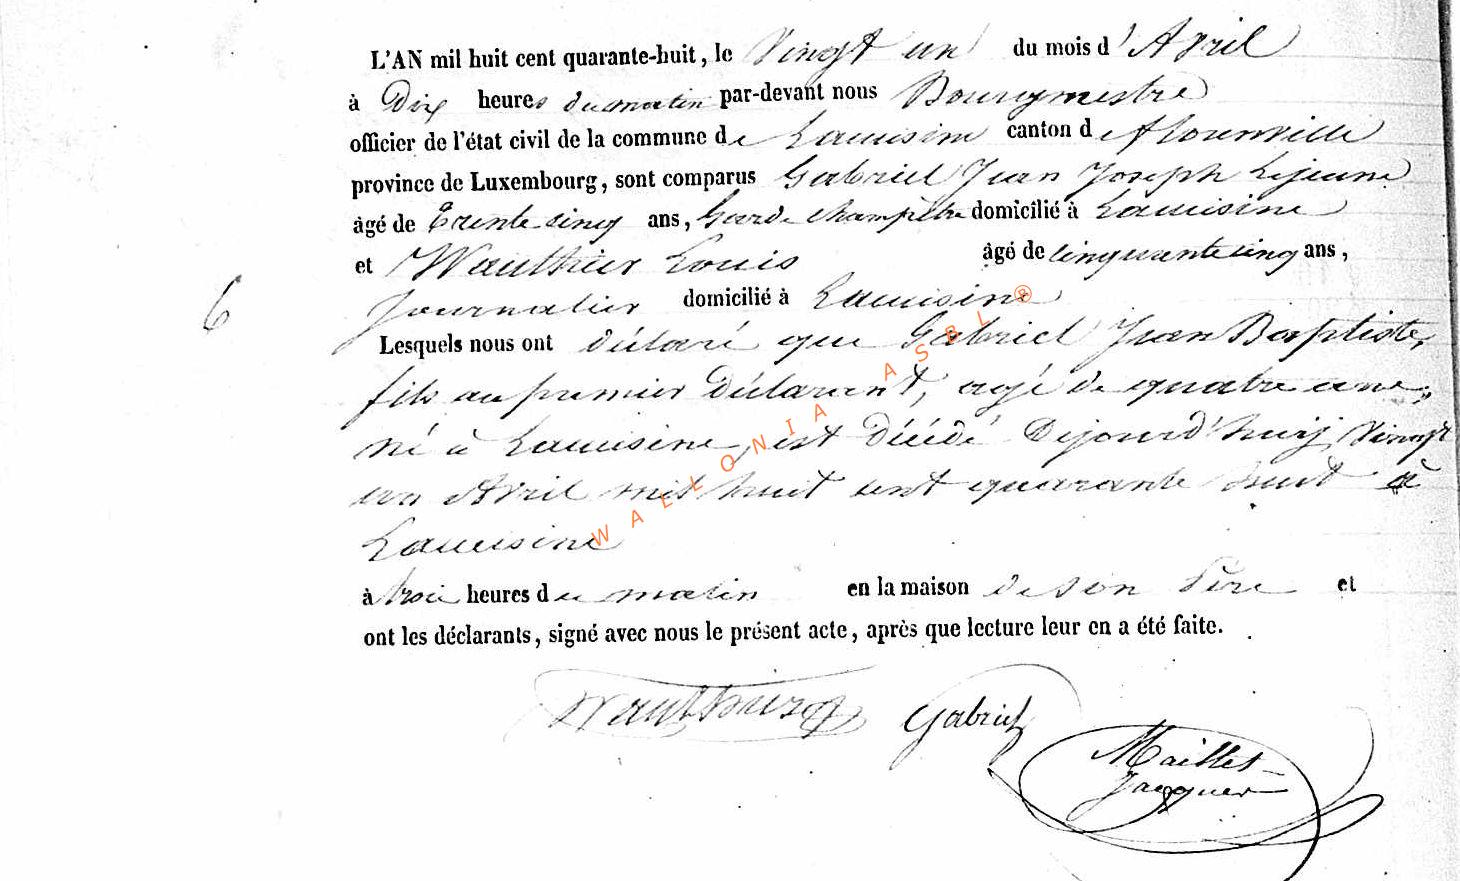 L'AN mil huit cent quarante-huit, le Vingt un du mois d'Avril
à Dix heures du matin par-devant nous Bourgmestre
officier de l'état civil de la commune de Lacuisine canton de florenville
province de Luxembourg, sont comparus Gabriel Jean Joseph Lejeune
âgé de Trente cinq ans, Garde champêtre domicilié à Lacuisine
et Wauthier Louis âgé de cinquante cinq ans,
6
Journalier domicilié à Lacuisine
Lesquels nous ont déclaré que Gabriel Jean Baptiste,
fils au premier déclarant, agé de quatre ans,
né à Lacuisine, est décédé Dejourd'huij Vingt
un Avril mil huit cent quarante huit à
Lacuisine
à trois heures du matin en la maison de son Père et
ont les déclarants, signé avec nous le présent acte, après que lecture leur en a été faite.
Wauthier Gabriel
Maillet
Jacques
WALLONIA ASBL ®